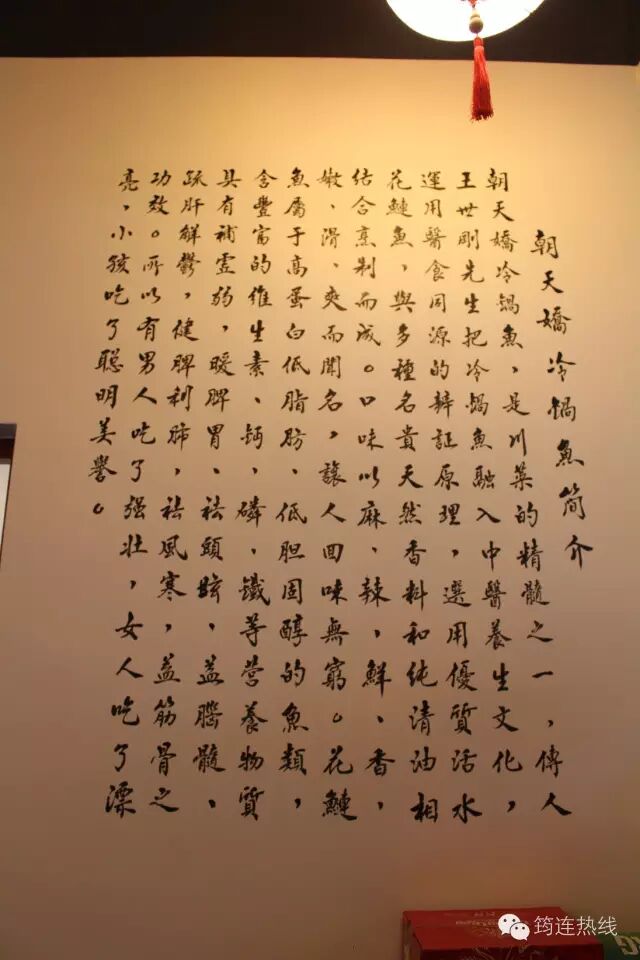 朝天嬌冷鍋魚簡介
朝天嬌冷鍋魚，是川菜的精髓之一，傳人
王世剛先生把冷鍋魚融入中醫養生文化，
運用醫食同源的辨証原理，選用優質活水
花鰱魚，與多種名貴天然香料和純清油相
结合烹制而成。口味以麻、辣，鮮、香，
嫩、滑、爽而聞名，讓人回味無窮。花鰱
魚屬于高蛋白低脂肪、低胆固醇的魚類，
含豐富的維生素、鈣、磷、鐵等营養物質
具有補虚弱，暖脾胃、祛頭眩、益腦髓、
疏肝解鬱，健脾利肺、祛風寒，益筋骨之
功效。所以有男人吃了强壯，女人吃了漂
亮，小孩吃了聰明美譽。
筠连热线